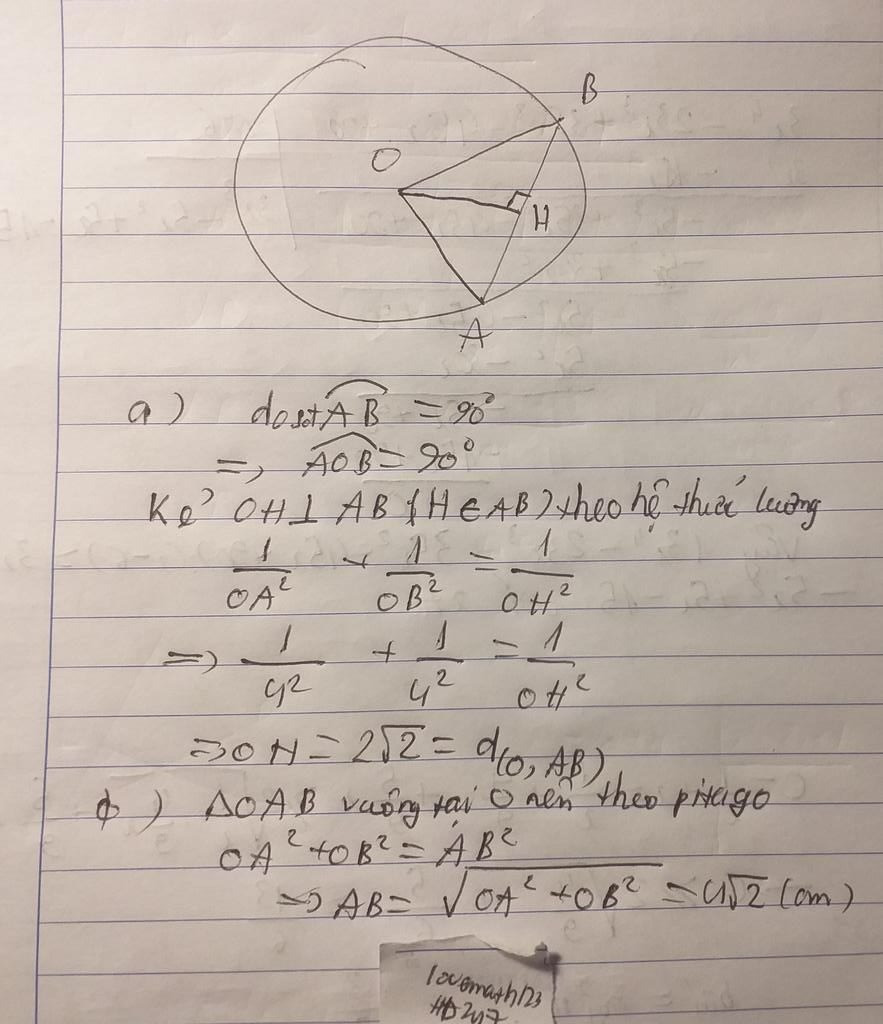 B
O
H
A
a) do sđ AB = 90°
=> AOB = 90°
Kẻ OH ⊥ AB (H ∈ AB) theo hệ thức lượng
1/OA² + 1/OB² = 1/OH²
=> 1/4² + 1/4² = 1/OH²
=> OH = 2√2 = d(O, AB)
b) ΔOAB vuông tại O nên theo pitago
OA² + OB² = AB²
=> AB = √(OA² + OB²) = 4√2 (cm)
lovemath123